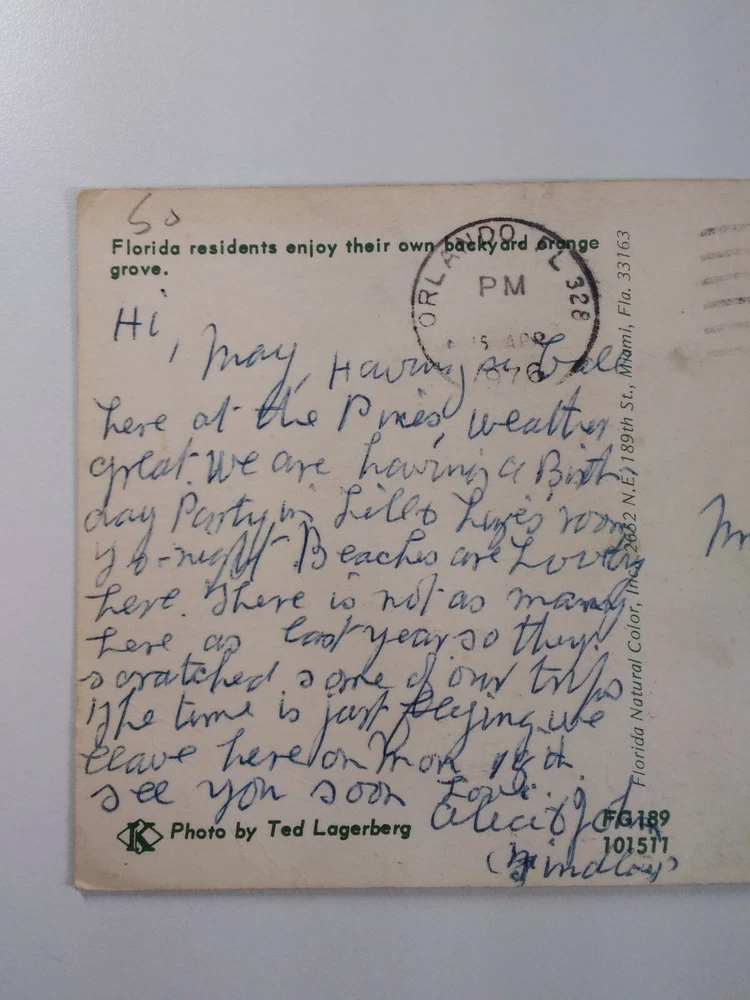 50
Florida residents enjoy their own backyard orange
grove.
ORLANDO, FL 328
PM
15 APR
1976
Hi,
May, Having a Ball
here at the Pines, weather
great. We are having a Birth
day Party in Lill & room
to-night. Beaches are Lovely
here. There is not as many
here as last year so they
scratched some of our trips
The time is just flying we
leave here on Mon
see you soon Love.
& John
K Photo by Ted Lagerberg
FG189
101511
Florida Natural Color, Inc., 2652 N.E. 189th St., Miami, Fla. 33163